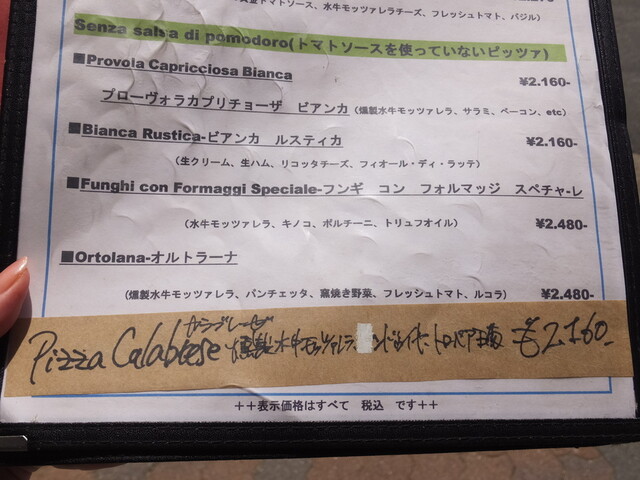 トマトソース、水牛モッツァレラチーズ、フレッシュトマト、バジル)
Senza salsa di pomodoro(トマトソースを使っていないピッツァ)
■Provola Capricciosa Bianca ¥2.160-
プローヴォラカプリチョーザ ビアンカ (燻製水牛モッツァレラ、サラミ、ベーコン、etc)
■Bianca Rustica-ビアンカ ルスティカ ¥2.160-
(生クリーム、生ハム、リコッタチーズ、フィオール・ディ・ラッテ)
■Funghi con Formaggi Speciale-フンギ コン フォルマッジ スペチャ-レ
(水牛モッツァレラ、キノコ、ポルチーニ、トリュフオイル) ¥2.480-
■Ortolana-オルトラーナ
(燻製水牛モッツァレラ、パンチェッタ、窯焼き野菜、フレッシュトマト、ルコラ) ¥2.480-
カラブレーゼ
Pizza Calabrese 燻製水牛モッツァレラ、ンドゥイヤ、トロペア玉葱 ¥2.160-
++表示価格はすべて 税込 です++